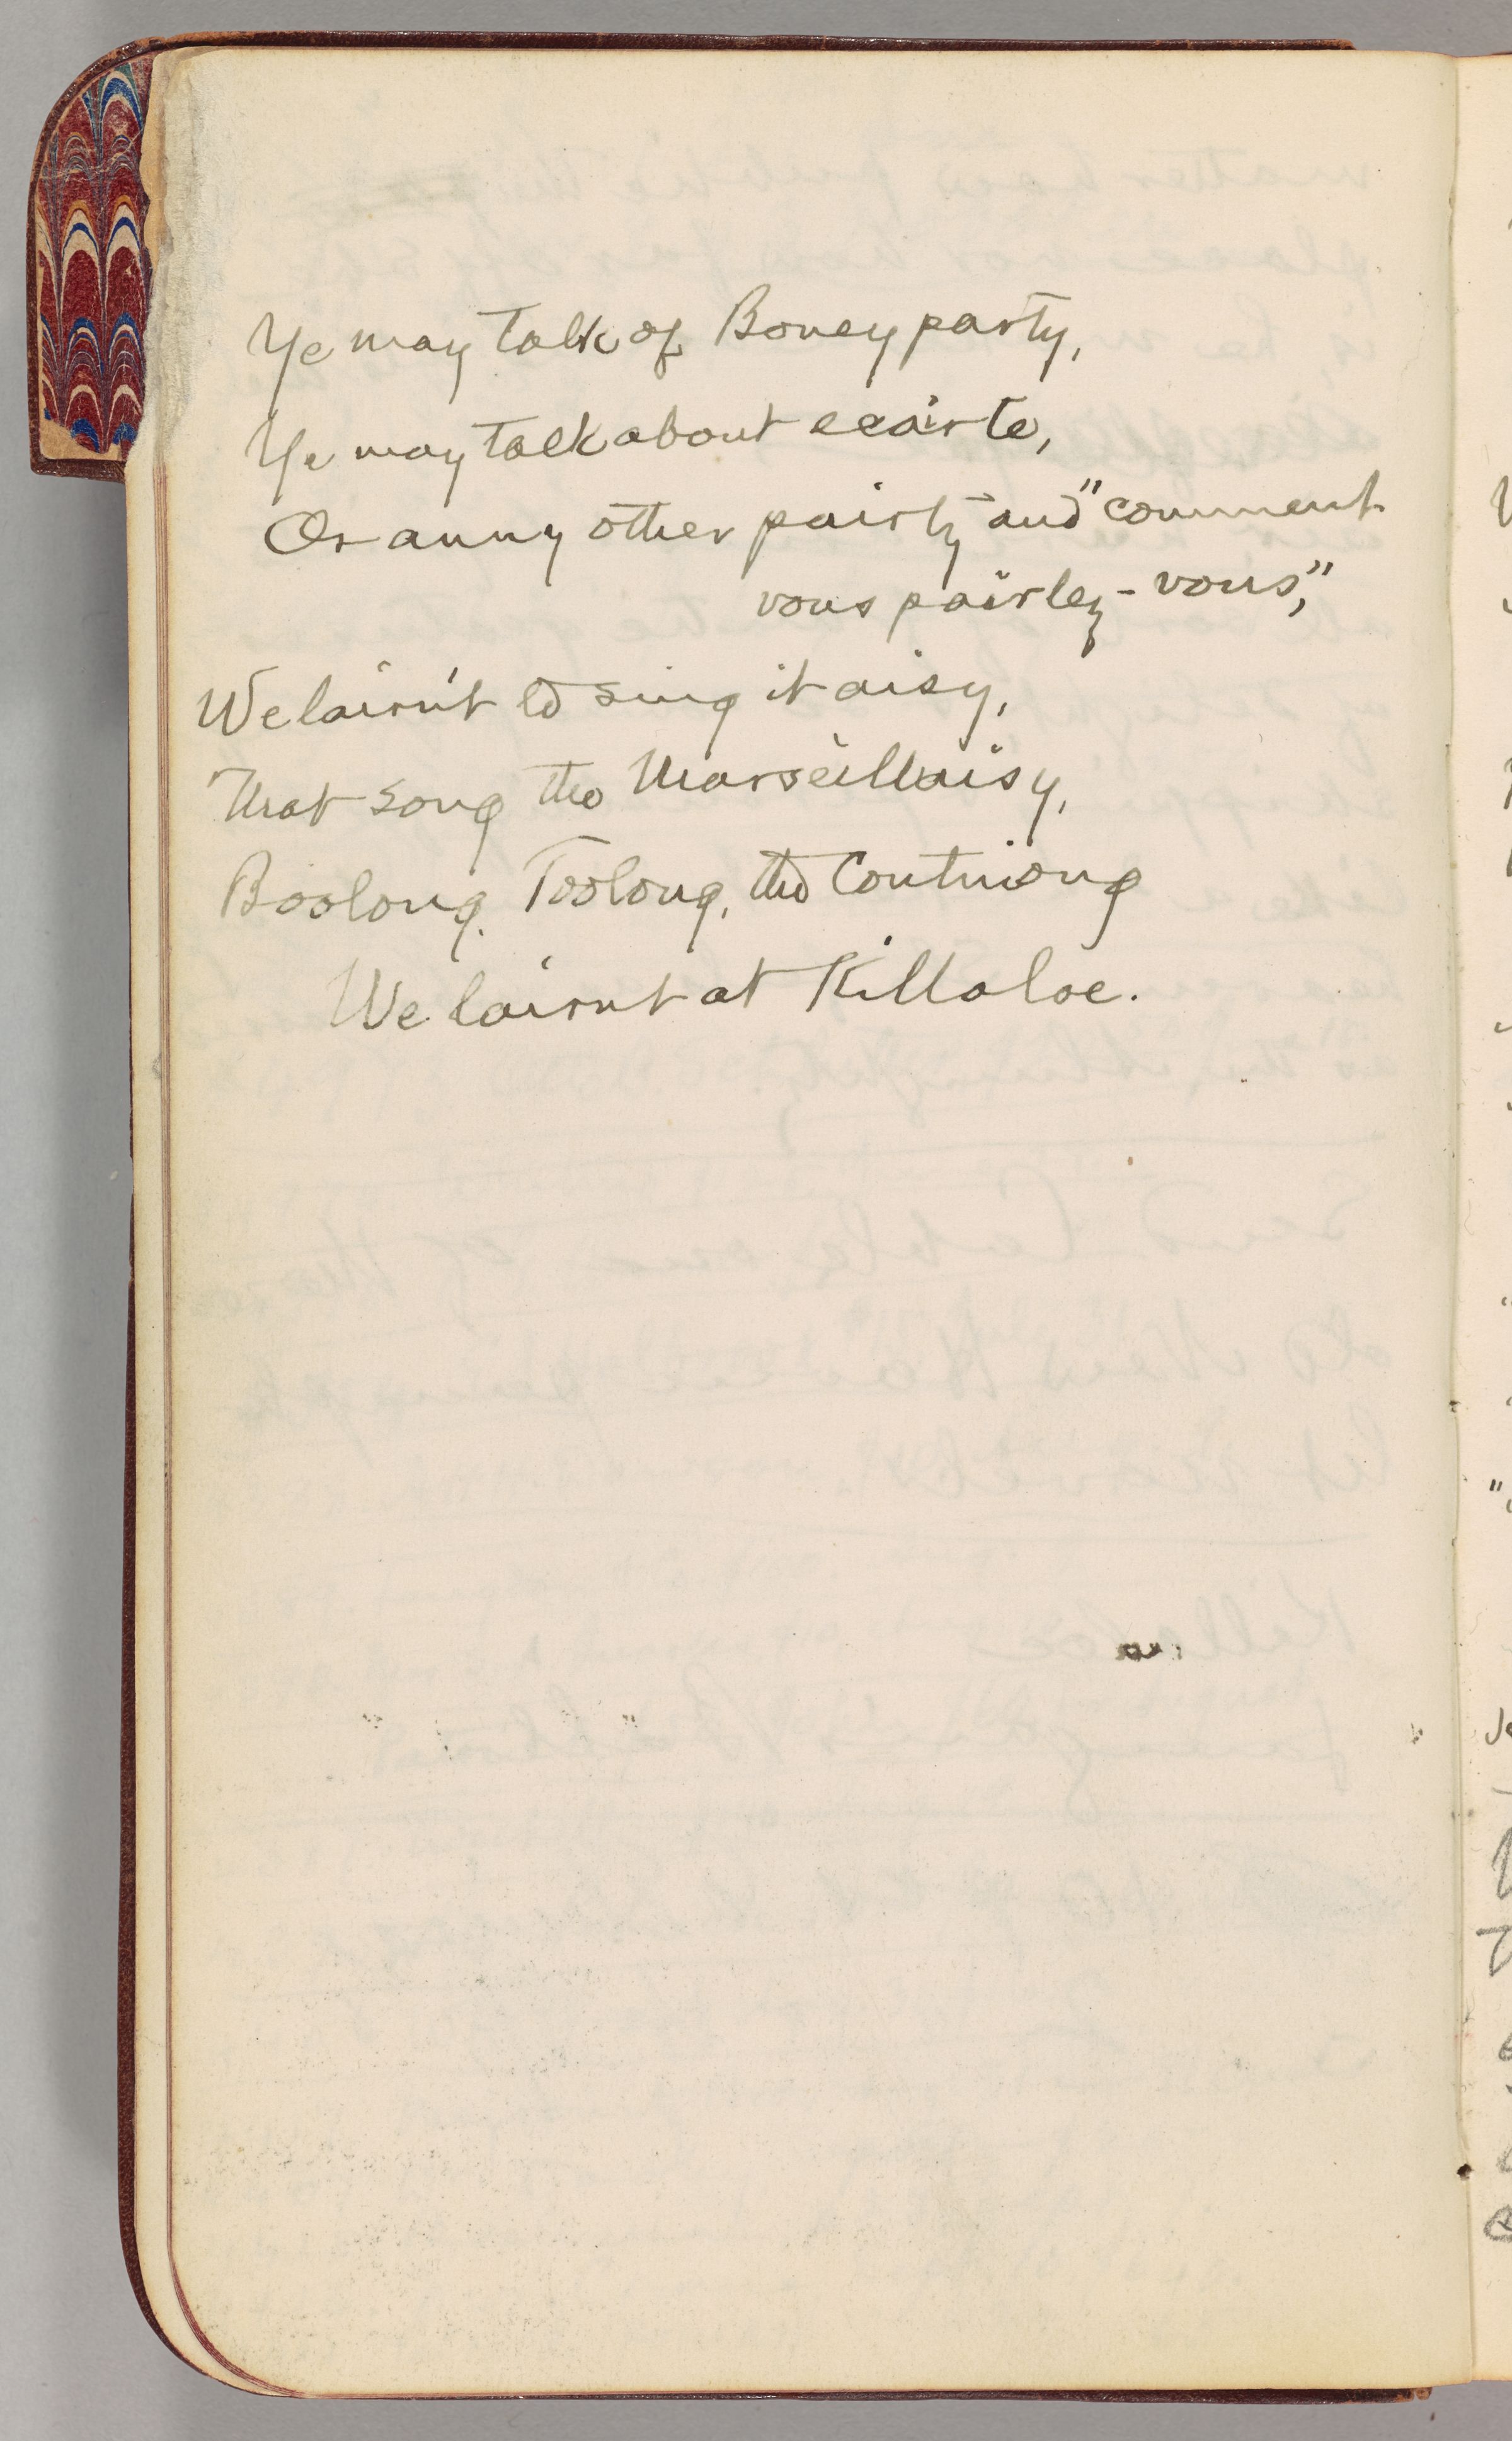 Ye may talk of Boney party,
Ye may talk about ecairte,
Or anny other pairty and "comment
vous pairley-vous",
We lairn't to sing it aisy,
That song the Marseillaisy,
Boolong, Toolong, the Continong
We lairnt at Killaloe.